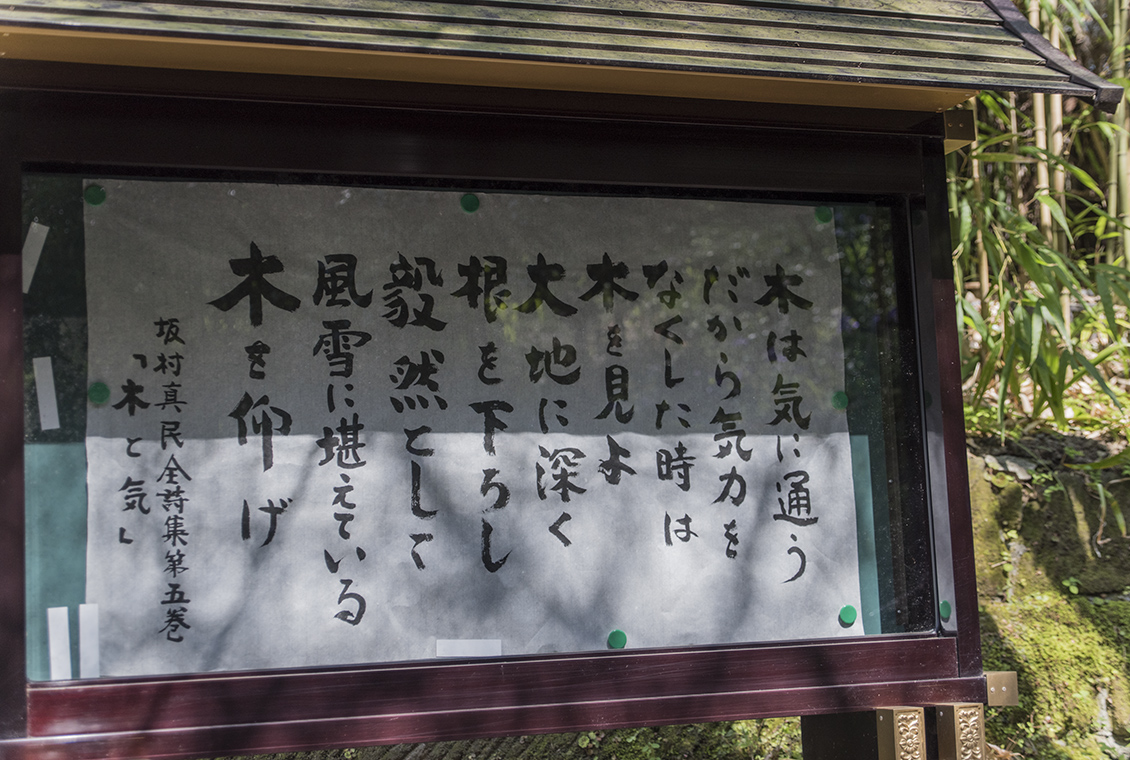 木は気に通う
だから気力を
なくした時は
木を見よ
大地に深く
根を下ろし
毅然として
風雪に堪えている
木を仰げ
坂村真民全詩集第五巻
「木と気」